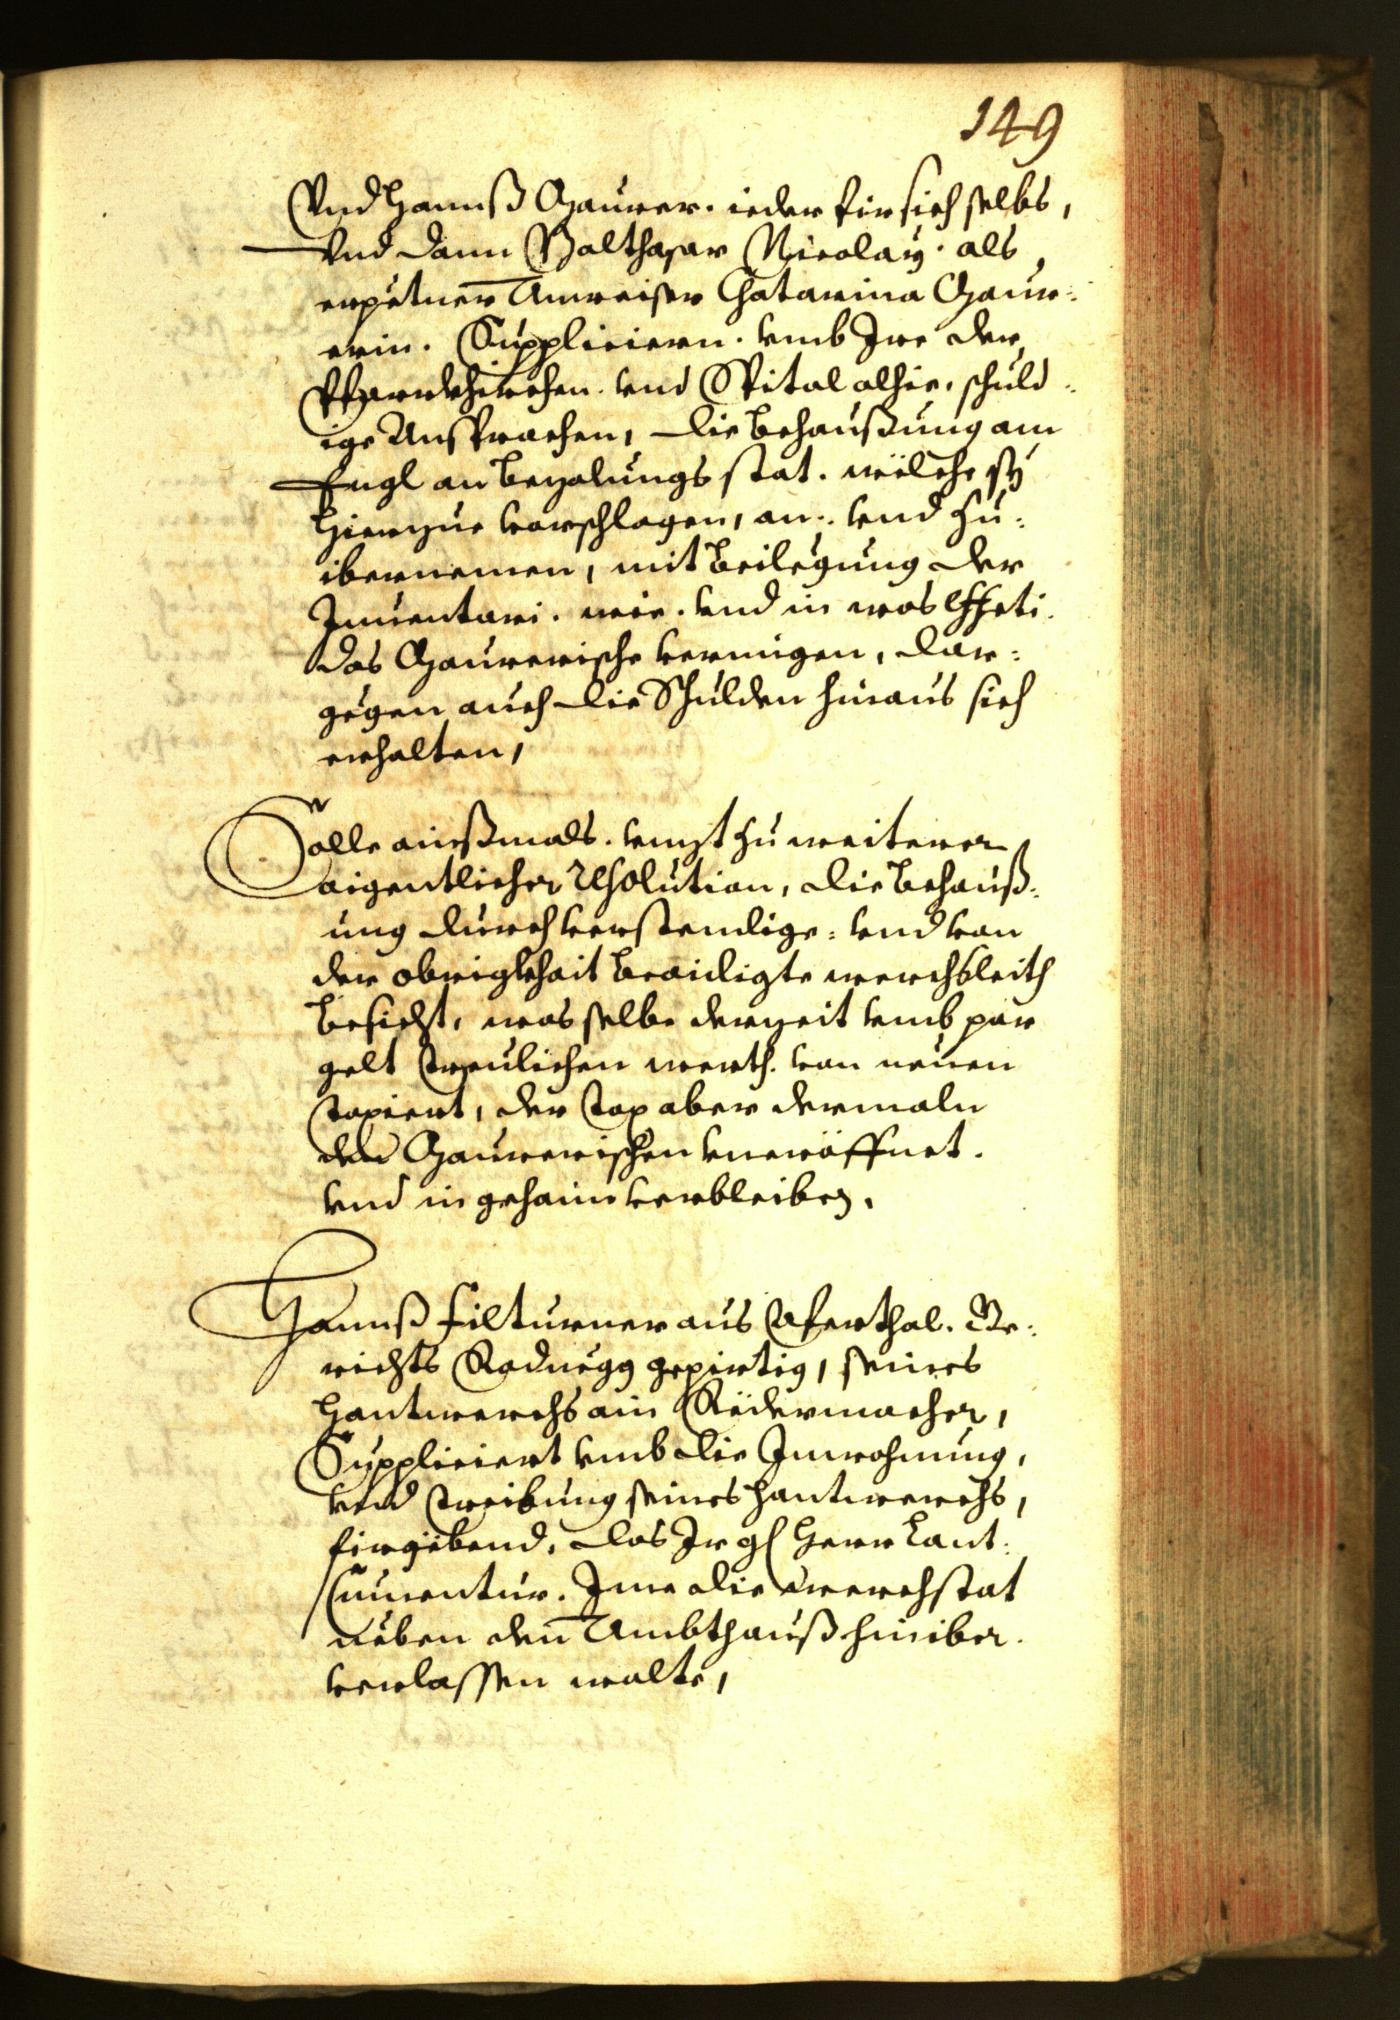 149
Vnd Hannß Gaurer. ieder fir sich selbs,
Vnd dann Balthasar Nicolaÿ. als
erpetner Anweiser Chatarina Gaur:
erin. Suppliciern. vmb Ire der
Pfarrkhirchen. vnd Spital alhie, schuld:
ige Ansprachen, die behaußung am
Engl an bezalungs stat. wëlche sÿ
hierzue vorschlagen, an: vnd zu:
ibernemen, mit beilegung der
Inuentari. wie. vnd in was effeti.
das Gaurerische vermigen, dar:
gegen auch die Schulden hinaus sich
erhalten,
Solle ainßmals. vnzt zu weiterer
aigentlicher resolution, die behauß:
ung durch verstendige: vnd von
der obrigkhait beaidigte werchsleith
besicht, was selbe derzeit vmb par
gelt treulichen werth. von neuen
taxiert, der tax aber dermaln
den Gaurerischen vneröffnet.
vnd in gehaim verbleiben.
Hannß Filturner aus Aferthal. Ge:
richts Rodnegg gepirtig, seines
hantwerchs ain Rëdermacher,
Suppliciert vmb die Inwohnung,
vnd treibung seines hantwerchs,
firgebend, das Ir gl Herr Lant:
Cumentur. Ime die werchstat
neben den Ambthauß hiniber.
verlassen wolte,